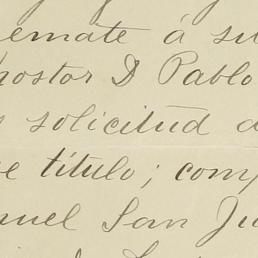 emate á su
postor D Pablo
solicitud d
e título; comp
nuel San Ju